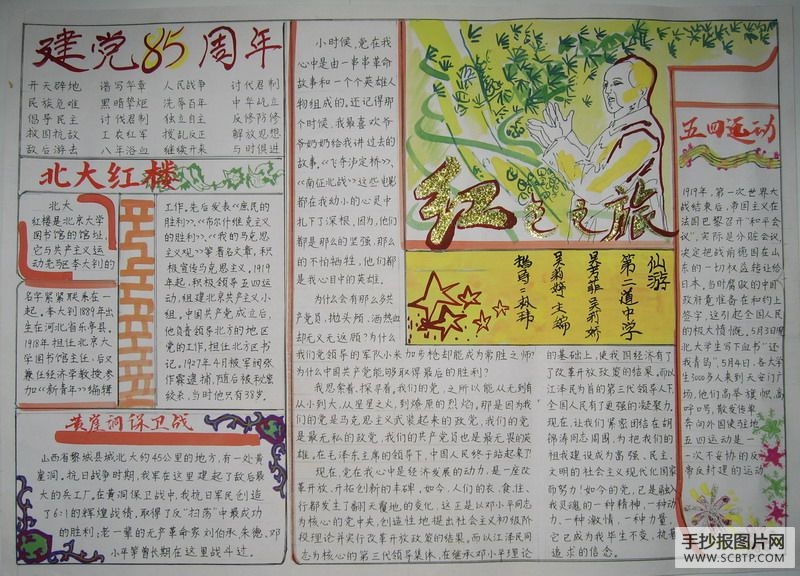 建党85周年
开天辟地 谱写华章 人民战争 讨代君制
民族危难 黑暗势炬 洗辱百年 中华屹立
倡导民主 讨伐君制 独立自主 反修防修
救国抗敌 工农红军 拨乱反正 解放思想
敌后游击 八年浴血 继续开来 与时俱进
北大红楼
北大
红楼是北京大学
图书馆的馆址,
它与共产主义运
动先驱李大钊的
名字紧紧联系在一
起。李大钊1889年出
生在河北省乐亭县。
1918年担任北京大
学图书馆主任、后又
兼任经济学教授参
加《新青年》编辑
工作。先后发表《庶民的
胜利》、《布尔什维克主义
的胜利》、《我的马克思
主义观》等著名文章,积
极宣传马克思主义。1919
年起,积极领导五四运
动,组建北京共产主义小
组,中国共产党成立后,
他负责领导北方的地区
党的工作,担任北方区书
记。1927年4月被军阀张
作霖逮捕,随后被秘密
绞杀,当时他只有38岁。
黄崖洞保卫战
山西省黎城县城北大约45公里的地方,有一处黄
崖洞。抗日战争时期,我军在这里建起了敌后最
大的兵工厂。在黄洞保卫战中,我抗日军民创造
了6:1的辉煌战绩,取得了反“扫荡”中最成功
的胜利;老一辈的无产革命家刘伯承、朱德、邓
小平等曾长期在这里战斗过。
小时候,党在我
心中是由一串串革命
故事和一个个英雄人
物组成的。还记得那
个时候,我最喜欢爷
爷奶奶给我讲过去的
故事。《飞夺泸定桥》、
《南征北战》这些电影
都在我幼小的心灵中
扎下了深根,因为,他们
都是那么的坚强,那么
的不怕牺牲,他们都
是我心目中的英雄。
为什么会有那么多共
产党员,抛头颅、洒热血
却无义无返顾?为什么
我们党领导的军队小米加步枪却能成为常胜之师?
为什么中国共产党能够取得最后的胜利?
我思索着,探寻着,我们的党,之所以能从无到有
从小到大,从星星之火,到燎原的烈焰,那是因为我
们的党是马克思主义武装起来的政党,我们的党
是最无私的政党,我们的共产党员也是最无畏的英
雄。在毛泽东主席的领导下,中国人民终于站起来了
现在,党在我心中是经济发展的动力,是一座改
革开放、开拓创新的丰碑。如今,人们的衣、食、住、
行都发生了翻天覆地的变化,这正是以邓小平同志
为核心的党中央,创造性地提出社会主义初级阶
段理论并实行改革开放政策的结果。而以江泽民同
志为核心的第三代领导集体,在继承邓小平理论
红色之旅
仙游
第二道中学
吴莉婷 主编
的基础上,使我国经济有了
了改革开放政策的结果。而以
江泽民为首的第三代领导人下,
全国人民有了更强的凝聚力。
现在,让我们紧密团结在胡
锦涛同志周围,为把我们的
祖国建设成为富强、民主、
文明的社会主义现代化国家
而努力!如今的党,已是融入
我灵魂的一种精神,一种动
力、一种激情、一种力量,
它已成为我毕生不变、执着
追求的信念。
五四运动
1919年,第一次世界大
战结束后,帝国主义在
法国巴黎召开“和平会
议”,实际是分赃会议,
决定把战前德国在山
东的一切权益转让给
日本,当时腐败的中国
政府竟准备在和约上
签字,这引起全国人民
的极大愤慨。5月3日
北大学生写下血书“还
我青岛”,5月4日,各大学
生3000多人来到天安门广
场,他们高举旗帜,高
呼口号,散发传单
奔向外国驻驻地
五四运动是一
次不妥协的反
帝反封建的运动
手抄报图片网
WWW.SCBTP.COM